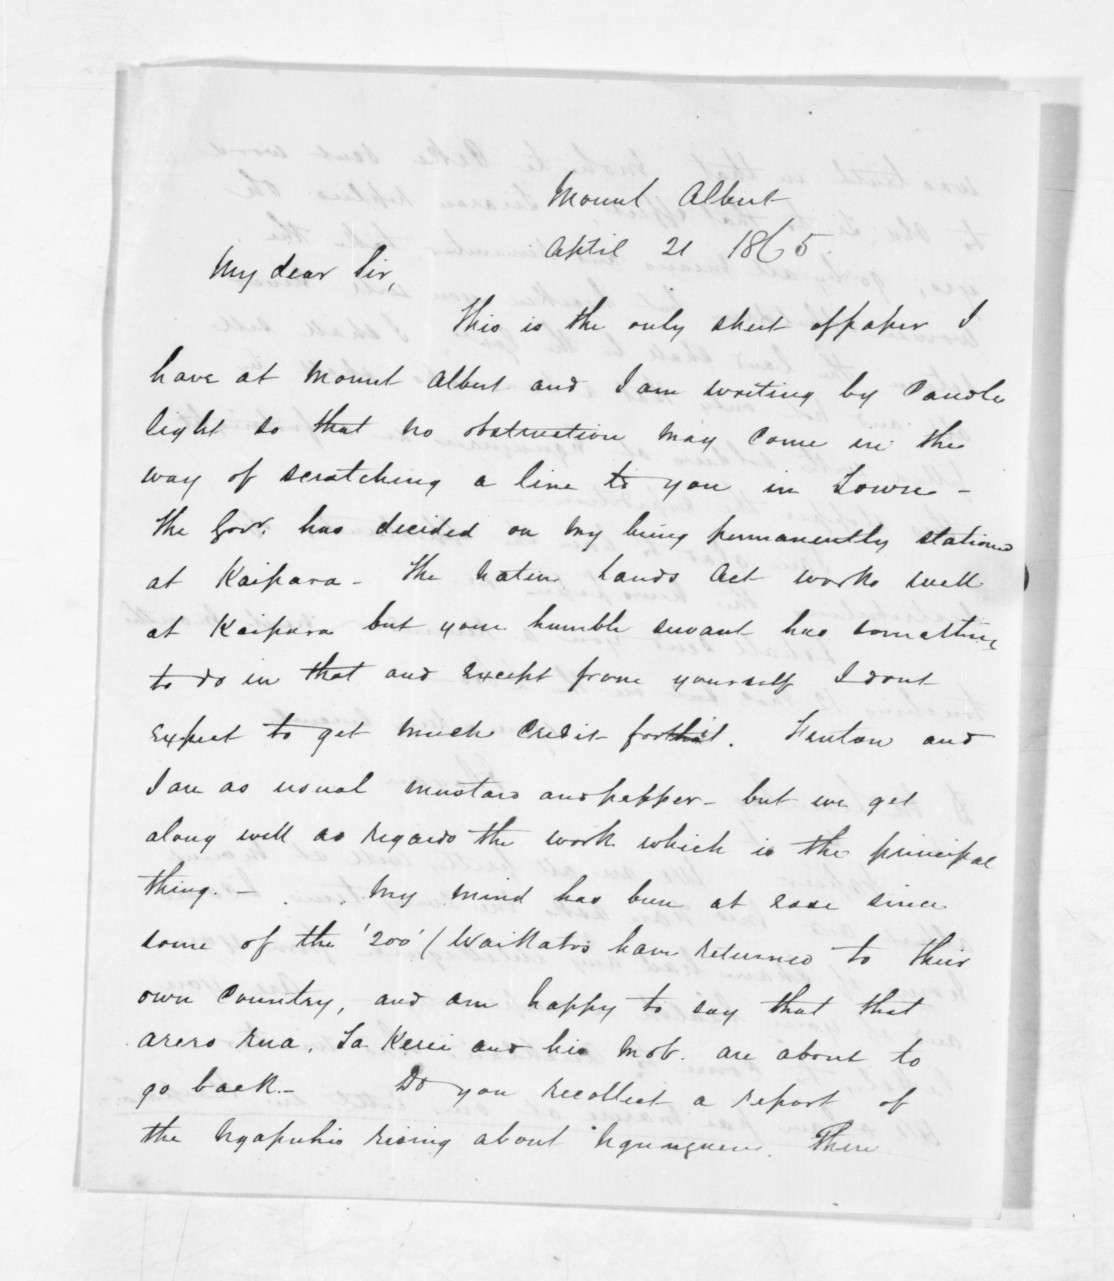 Mount Albert
April 21 1865.
My dear Sir,
This is the only sheet of paper I
have at Mount Albert and I am writing by Candle
light so that no obstruction may come in the
way of scratching a line to you in Town –
The Govr. has decided on my being permanently stationed
at Kaipara – The Native Lands Act works well
at Kaipara but your humble servant has something
to do in that and except from yourself I dont
expect to get much credit for that. Fenton and
I are as usual mustard and pepper – but we get
along well as regards the work which is the principal
thing. – My mind has been at ease since
some of the '200' (Waikatos have returned to their
own Country, and am happy to say that that
arero rua, Ta Kerei and his mob. are about to
go back. – Do you recollect a report of
the Ngapuhis rising about Ngunguru. There